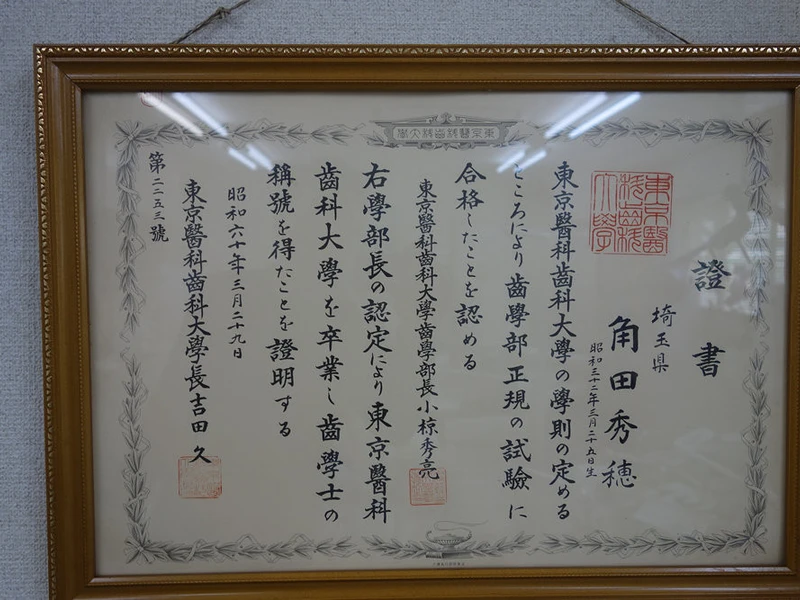 東京醫科齒科大學
證書
東京醫科齒科大學
埼玉県
角田秀穂
昭和三十二年三月二十五日生
東京醫科齒科大學の學則の定める
ところにより齒學部正規の試驗に
合格したことを認める
東京醫科齒科大學齒學部長小椋秀亮
右學部長の認定により東京醫科
齒科大學を卒業し齒學士の
稱號を得たことを證明する
昭和六十年三月二十九日
東京醫科齒科大學長吉田久
第一二五三號